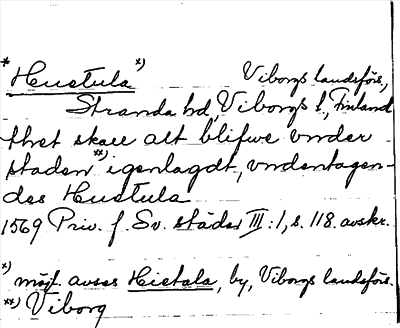 * Hustula *) Viborgs landsförs,
Stranda hd, Viborgs l, Finland
thet skall alt blifwe vnder
staden **) igenlagdt, vndentagen-
des Hustula
1569 Priv. f. Sv. städer III:1, s. 118. avskr.
*) möjl. avses Hietala, by, Viborgs landsförs.
**) Viborg